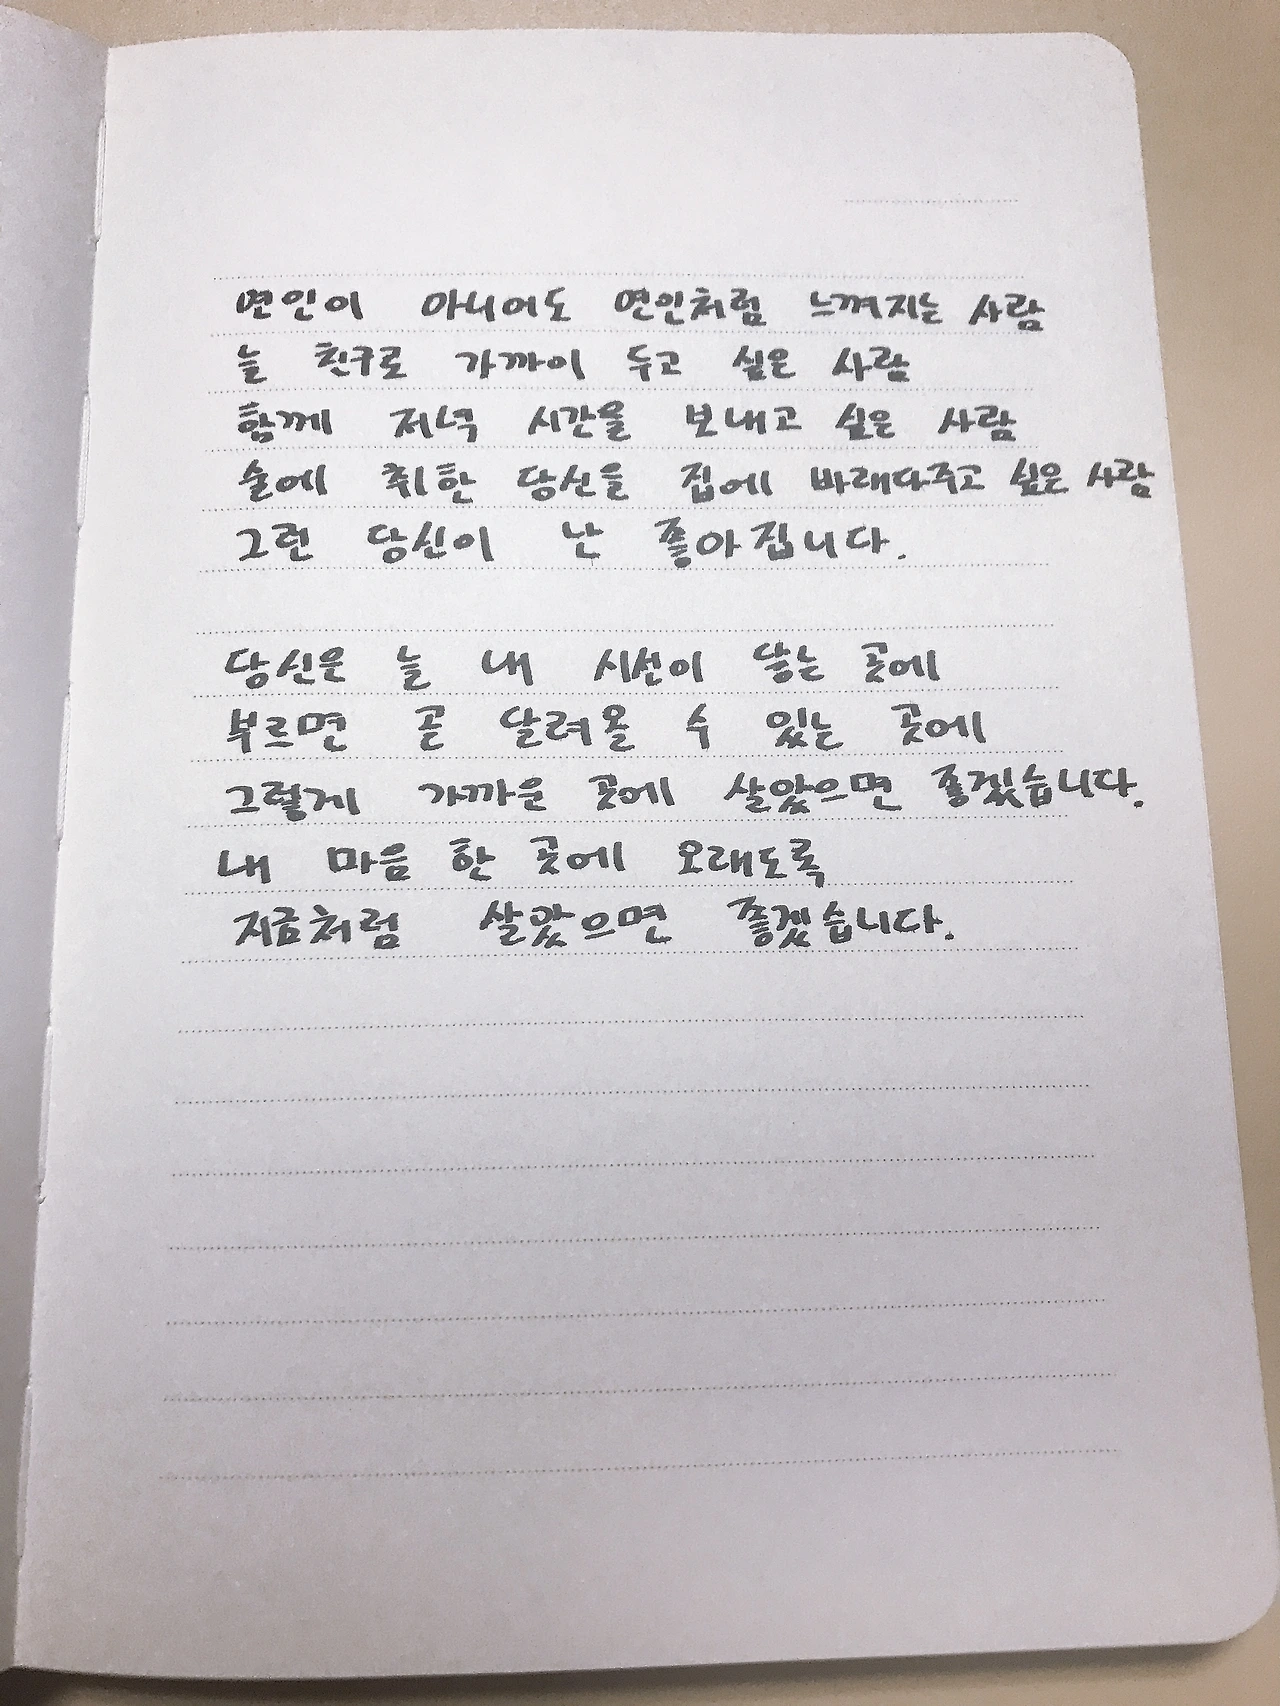 연인이 아니어도 연인처럼 느껴지는 사람
늘 친구로 가까이 두고 싶은 사람
함께 저녁 시간을 보내고 싶은 사람
술에 취한 당신을 집에 바래다주고 싶은 사람
그런 당신이 난 좋아집니다.
당신은 늘 내 시선이 닿는 곳에
부르면 곧 달려올 수 있는 곳에
그렇게 가까운 곳에 살았으면 좋겠습니다.
내 마음 한 곳에 오래도록
지금처럼 살았으면 좋겠습니다.